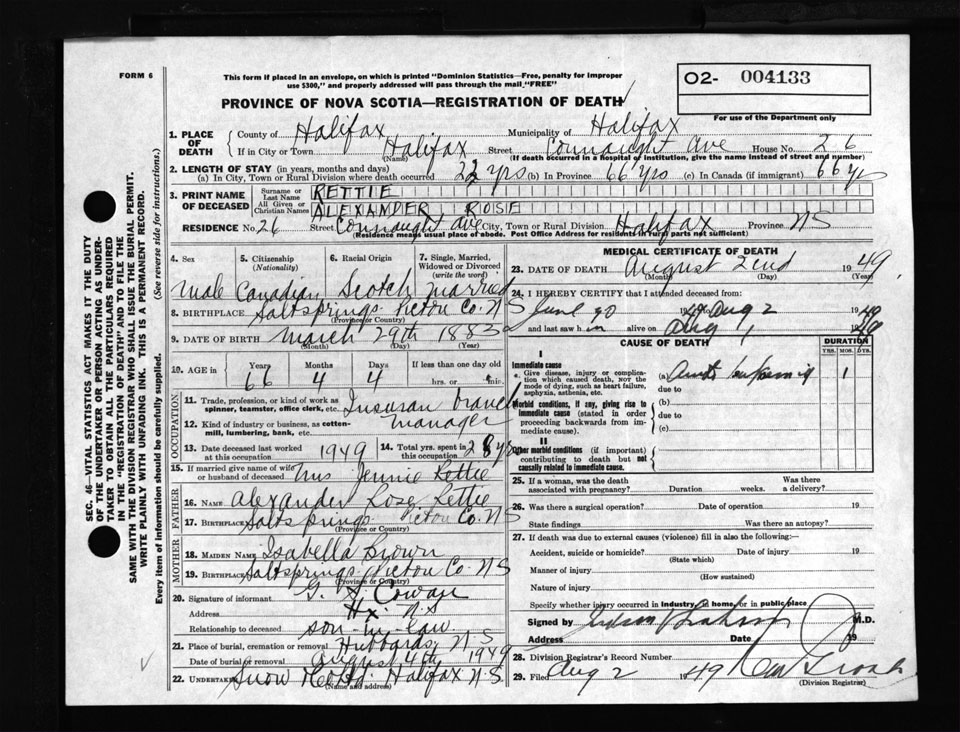 FORM 6
This form if placed in an envelope, on which is printed "Dominion Statistics—Free, penalty for improper
use $300," and properly addressed will pass through the mail "FREE"
O2- 004133
For use of the Department only
PROVINCE OF NOVA SCOTIA—REGISTRATION OF DEATH
SEC. 46—VITAL STATISTICS ACT MAKES IT THE DUTY
OF THE UNDERTAKER OR PERSON ACTING AS UNDER-
TAKER TO OBTAIN ALL THE PARTICULARS REQUIRED
IN THE "REGISTRATION OF DEATH" AND TO FILE THE
SAME WITH THE DIVISION REGISTRAR WHO SHALL ISSUE THE BURIAL PERMIT.
WRITE PLAINLY WITH UNFADING INK. THIS IS A PERMANENT RECORD.
Every item of information should be carefully supplied. (See reverse side for instructions.)
1. PLACE OF DEATH
County of Halifax Municipality of Halifax
If in City or Town Halifax Street Connaught Ave House No. 26
(Name) (If death occurred in a hospital or institution, give the name instead of street and number)
2. LENGTH OF STAY (in years, months and days)
(a) In City, Town or Rural Division where death occurred 22 yrs (b) In Province 66 yrs (c) In Canada (if immigrant) 66 yrs
3. PRINT NAME OF DECEASED
Surname or Last Name RETTIE
All Given or Christian Names ALEXANDER ROSE
RESIDENCE No. 26 Street Connaught Ave City, Town or Rural Division Halifax Province NS
(Residence means usual place of abode. Post Office Address for residents in rural parts not sufficient)
4. Sex 5. Citizenship (Nationality) 6. Racial Origin 7. Single, Married, Widowed or Divorced (write the word)
Male Canadian Scotch Married
8. BIRTHPLACE Saltsprings Pictou Co. N S
(Province or Country)
9. DATE OF BIRTH March 29th 1883
(Month) (Day) (Year)
10. AGE in Years Months Days If less than one day old
66 4 4 hrs. or min.
OCCUPATION
11. Trade, profession, or kind of work as spinner, teamster, office clerk, etc.
12. Kind of industry or business, as cotten-mill, lumbering, bank, etc. manager
13. Date deceased last worked at this occupation 1949 14. Total yrs. spent in this occupation 28 yrs
15. If married give name of wife or husband of deceased Mrs Jennie Rettie
FATHER
16. NAME Alexander Rose Rettie
17. BIRTHPLACE Saltsprings Pictou Co. N S
(Province or Country)
MOTHER
18. MAIDEN NAME Isabella Brown
19. BIRTHPLACE Saltsprings Pictou Co. N S
(Province or Country)
20. Signature of informant Cowan
Address Hx. N.S
Relationship to deceased son-in-law
21. Place of burial, cremation or removal Hubbards, N.S
Date of burial or removal August 4th 1949
22. Undertaker Snow Halifax N.S.
(Name and address)
MEDICAL CERTIFICATE OF DEATH
23. DATE OF DEATH August 2nd 1949
(Month) (Day) (Year)
24. I HEREBY CERTIFY that I attended deceased from:
June to Aug 2 1949
and last saw him alive on Aug 1, 1949
CAUSE OF DEATH DURATION
YRS. MOS. DYS.
I
Immediate cause
Give disease, injury or complication which caused death, NOT the mode of dying, such as heart failure, asphyxia, asthenia, etc.
(a) 1
due to
Morbid conditions, if any, giving rise to immediate cause (stated in order proceeding backwards from immediate cause).
(b)
due to
(c)
II
Other morbid conditions (if important) contributing to death but not causally related to immediate cause.
25. If a woman, was the death associated with pregnancy? Duration weeks. Was there a delivery?
26. Was there a surgical operation? Date of operation 19
State findings Was there an autopsy?
27. If death was due to external causes (violence) fill in also the following:
Accident, suicide or homicide? Date of injury 19
(State which)
Manner of injury
(How sustained)
Nature of injury
Specify whether injury occurred in industry, in home, or in public place
Signed by M.D.
Address Date 19
28. Division Registrar's Record Number
29. Filed Aug 2 1949
(Division Registrar)